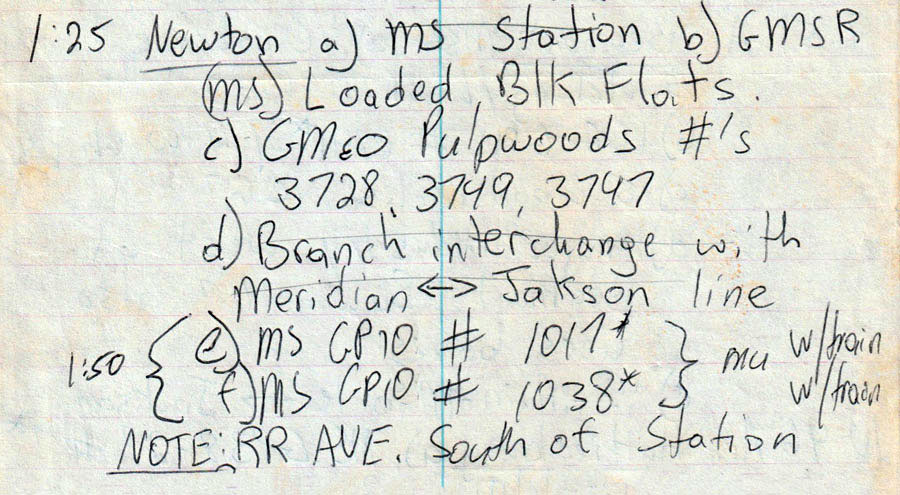 1:25 Newton a) MS Station b) GMSR
(MS) Loaded Blk Flats.
c) GM&O Pulpwoods #'s
3728, 3749, 3747
d) Branch interchange with
Meridian <-> Jakson line
1:50 { e) MS GP10 # 1017* } mu w/train
f) MS GP10 # 1038* w/train
NOTE: RR AVE. South of Station